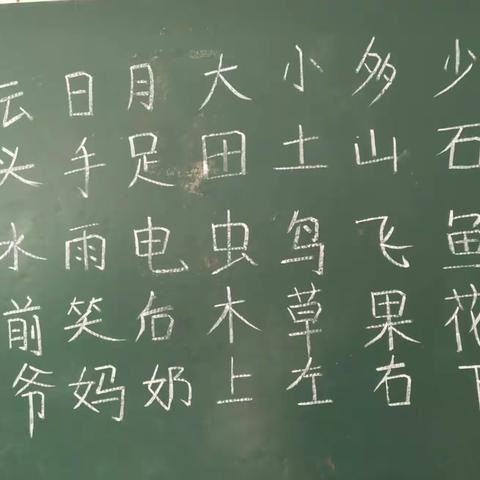 云日月大小多少
头手足田土山石
水雨电虫鸟飞鱼
前笑后木草果花
爷妈奶上左右下